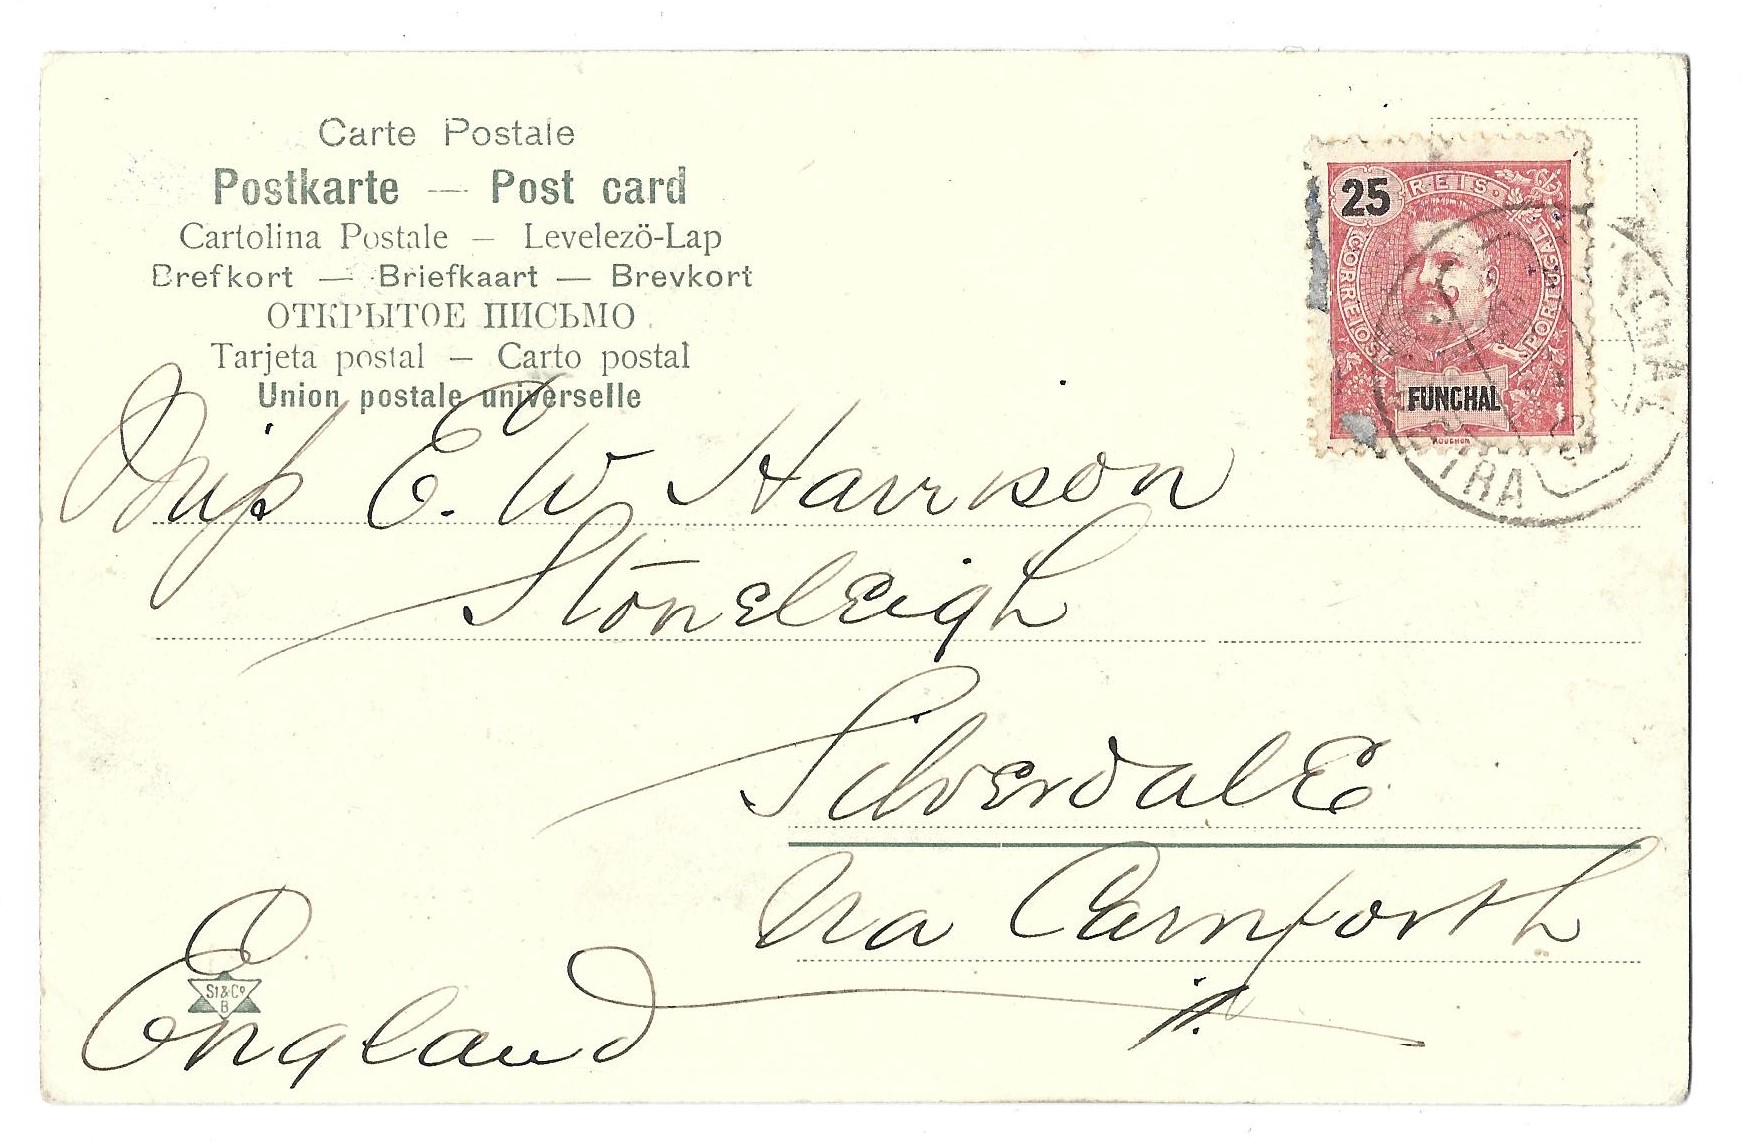 Carte Postale
Postkarte — Post card
Cartolina Postale — Levelező-Lap
Brefkort — Briefkaart — Brevkort
ОТКРЫТОЕ ПИСЬМО.
Tarjeta postal — Carto postal
Union postale universelle
25
REIS
CORREIOS
PORTUGAL
FUNCHAL
MOUCHON
TRA
Miss E. W Harrison
Stoneleigh
Silverdale
Via Carnforth
England
St & Co
B